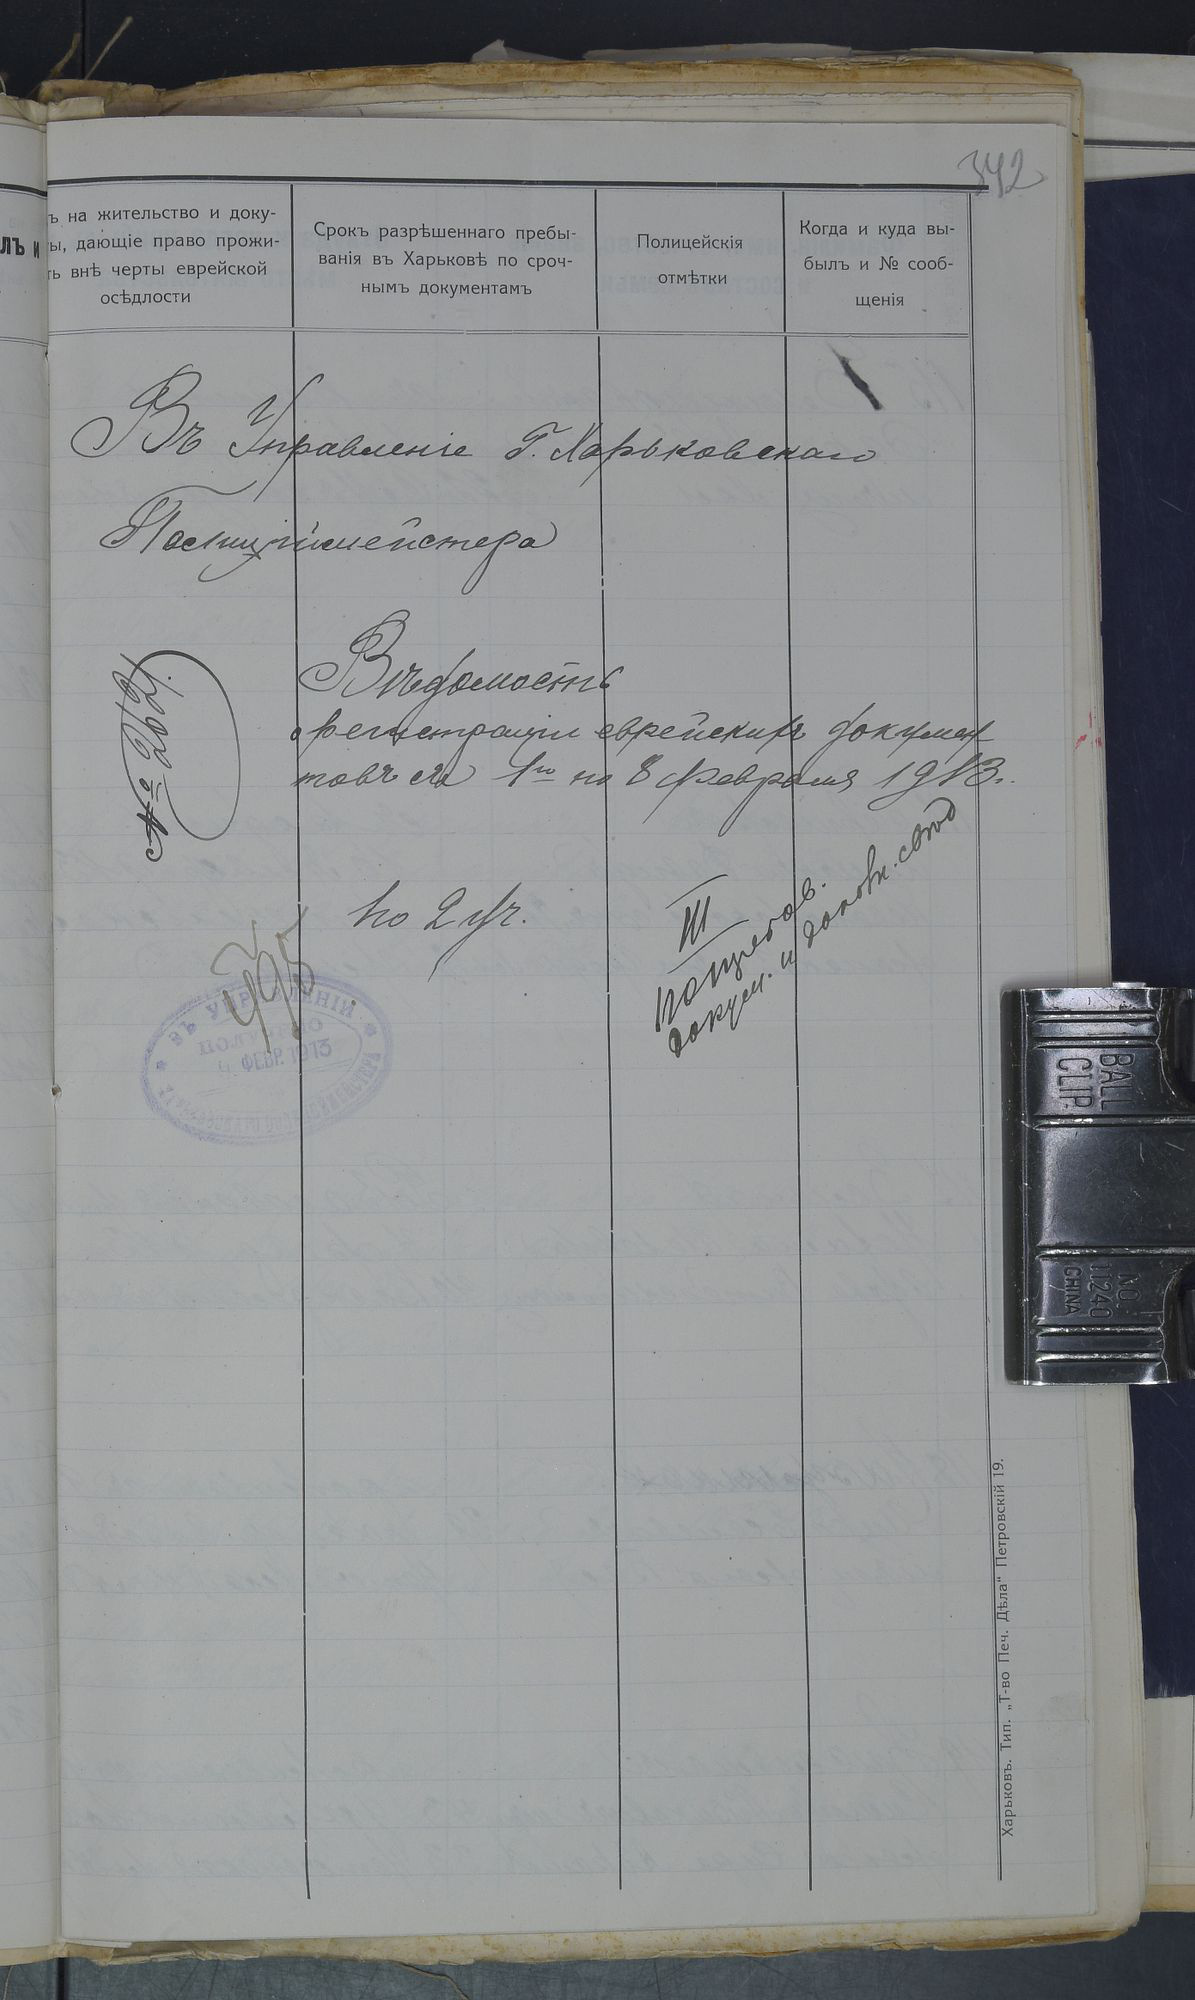 342
лъ и
ъ на жительство и доку-
ы, дающіе право прожи-
ть внѣ черты еврейской
осѣдлости
Срокъ разрѣшеннаго пребы-
ванія въ Харьковѣ по сроч-
нымъ документамъ
Полицейскія
отмѣтки
Когда и куда вы-
былъ и № сооб-
щенія
Въ Управленіе Г. Харьковскаго
Полиціймейстера
№ 2621.
Вѣдомость
о регистраціи еврейскихъ докумен
товъ съ 1го по 8 февраля 1913 г.
по 2 уч.
III
докум. и
ВЪ УПРАВЛЕНІИ
ПОЛУЧЕНО
ФЕВР. 1913
ХАРЬКОВСКАГО ПОЛИЦІЙМЕЙСТЕРА
BALL
CLIP
NO.
11240
CHINA
Харьковъ. Тип. „Т-во Печ. Дѣла" Петровскій 19.